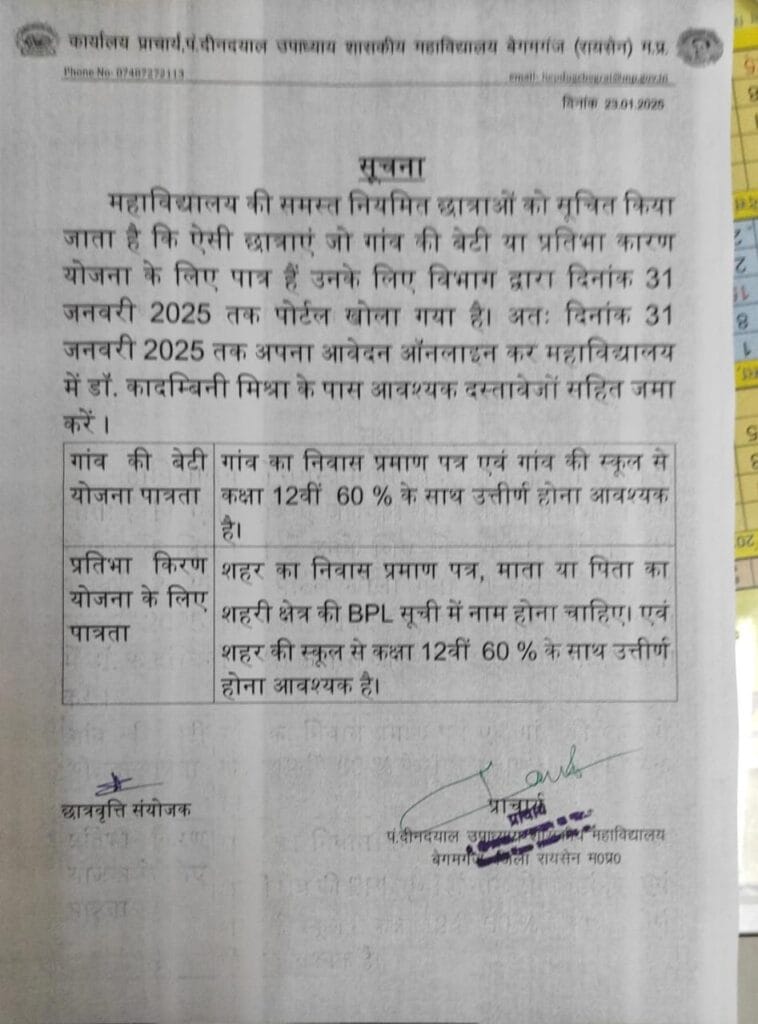 कार्यालय प्राचार्य,पं.दीनदयाल उपाध्याय शासकीय महाविद्यालय बेगमगंज (रायसेन) म.प्र.
Phone No: 07487272113
email:
दिनांक 23.01.2025
सूचना
महाविद्यालय की समस्त नियमित छात्राओं को सूचित किया
जाता है कि ऐसी छात्राएं जो गांव की बेटी या प्रतिभा कारण
योजना के लिए पात्र हैं उनके लिए विभाग द्वारा दिनांक 31
जनवरी 2025 तक पोर्टल खोला गया है। अतः दिनांक 31
जनवरी 2025 तक अपना आवेदन ऑनलाइन कर महाविद्यालय
में डॉ. कादम्बिनी मिश्रा के पास आवश्यक दस्तावेजों सहित जमा
करें ।
गांव की बेटी योजना पात्रता
गांव का निवास प्रमाण पत्र एवं गांव की स्कूल से
कक्षा 12वीं 60 % के साथ उत्तीर्ण होना आवश्यक
है।
प्रतिभा किरण
योजना के लिए
पात्रता
शहर का निवास प्रमाण पत्र, माता या पिता का
शहरी क्षेत्र की BPL सूची में नाम होना चाहिए। एवं
शहर की स्कूल से कक्षा 12वीं 60 % के साथ उत्तीर्ण
होना आवश्यक है।
छात्रवृत्ति संयोजक
प्राचार्य
प्राचार्य
पं.दीनदयाल उपाध्याय शासकीय महाविद्यालय
बेगमगंज जिला रायसेन म०प्र०